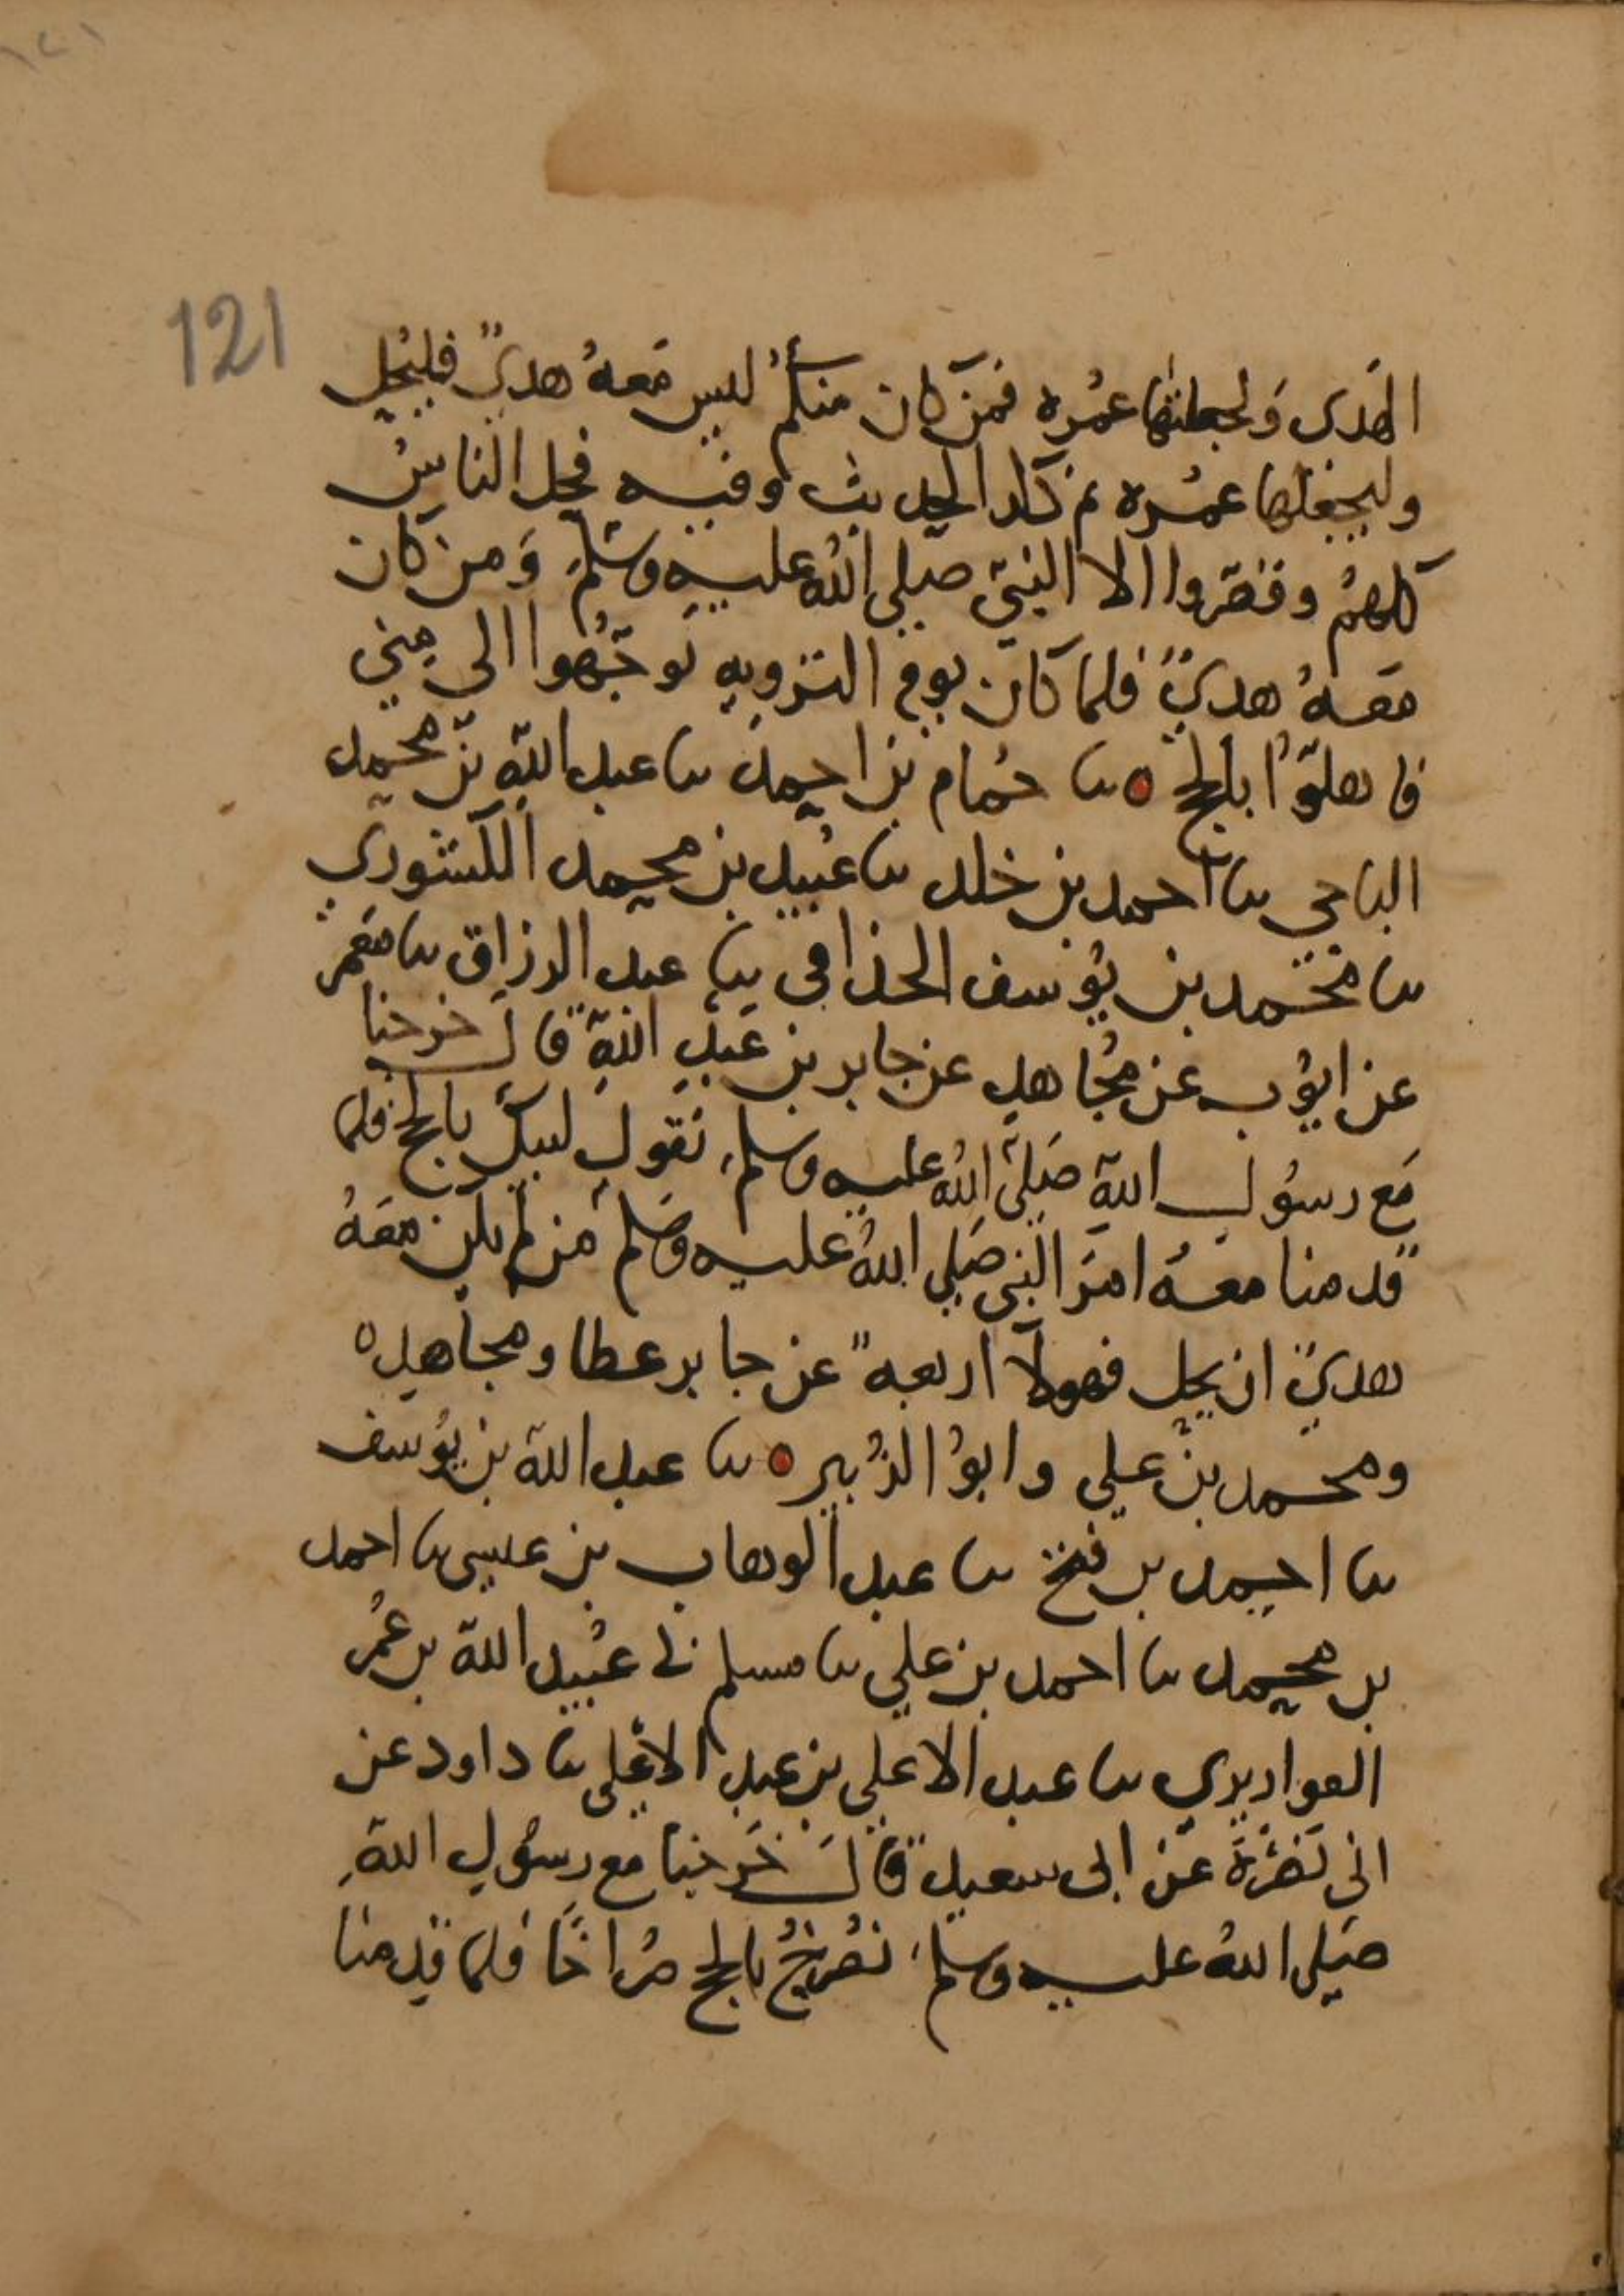 ١٢١
121
الهَدى وَلجعلتها عمُره فمَن كان منكم ليس مَعهُ هديٌ فليَحِل
وليجعلها عمُره ثم ذكر الحديث وفيه فحل الناسُ
كلهمُ وقصّروا الا النبيّ صلى الله عليه وسلم وَمن كان
مَعهُ هديٌ فلما كان يوم التروِيهِ توجّهُوا الى مِنى
فاهلوّا بالحج ٥ نا حمُام بن احمد نا عبد الله بن محمد
الباجي نا احمد بن خلد نا عُبيد بن محمد الكشوري
نا محمد بن يوُسف الحذافي نا عبد الرزاق نا مَعمر
عن ايوُب عن مجُاهدٍ عن جابر بن عَبدِ اللهِ قال خرجنا
مَع رسُول اللهِ صَلى اللهُ عليه وسلم نقول لبيك بالحج فلما
قدمنا معهُ امَر النبي صَلى اللهُ عليه وسَلم مَن لم يكن معَهُ
هديٌ ان يحل فهولآ اربعه عن جابر عطا ومجاهد ٥
ومحمد بن علي وابوُ الزُبير ٥ نا عبد الله بن يوُسف
نا احمد بن فتح نا عبد الوهاب بن عيسى نا احمد
بن محمد نا احمد بن علي نا مسلم ني عُبيد الله بن عُمَر
القواريري نا عبد الاعلى بن عبد الاعلى نا داود عن
ابى نَضْرَة عَن ابى سعيد قالَ خَرَجنا مع رسُول اللهِ
صَلى اللهُ عليه وسلم نصُرخُ بالحج صُراخًا فلما قدِمنا